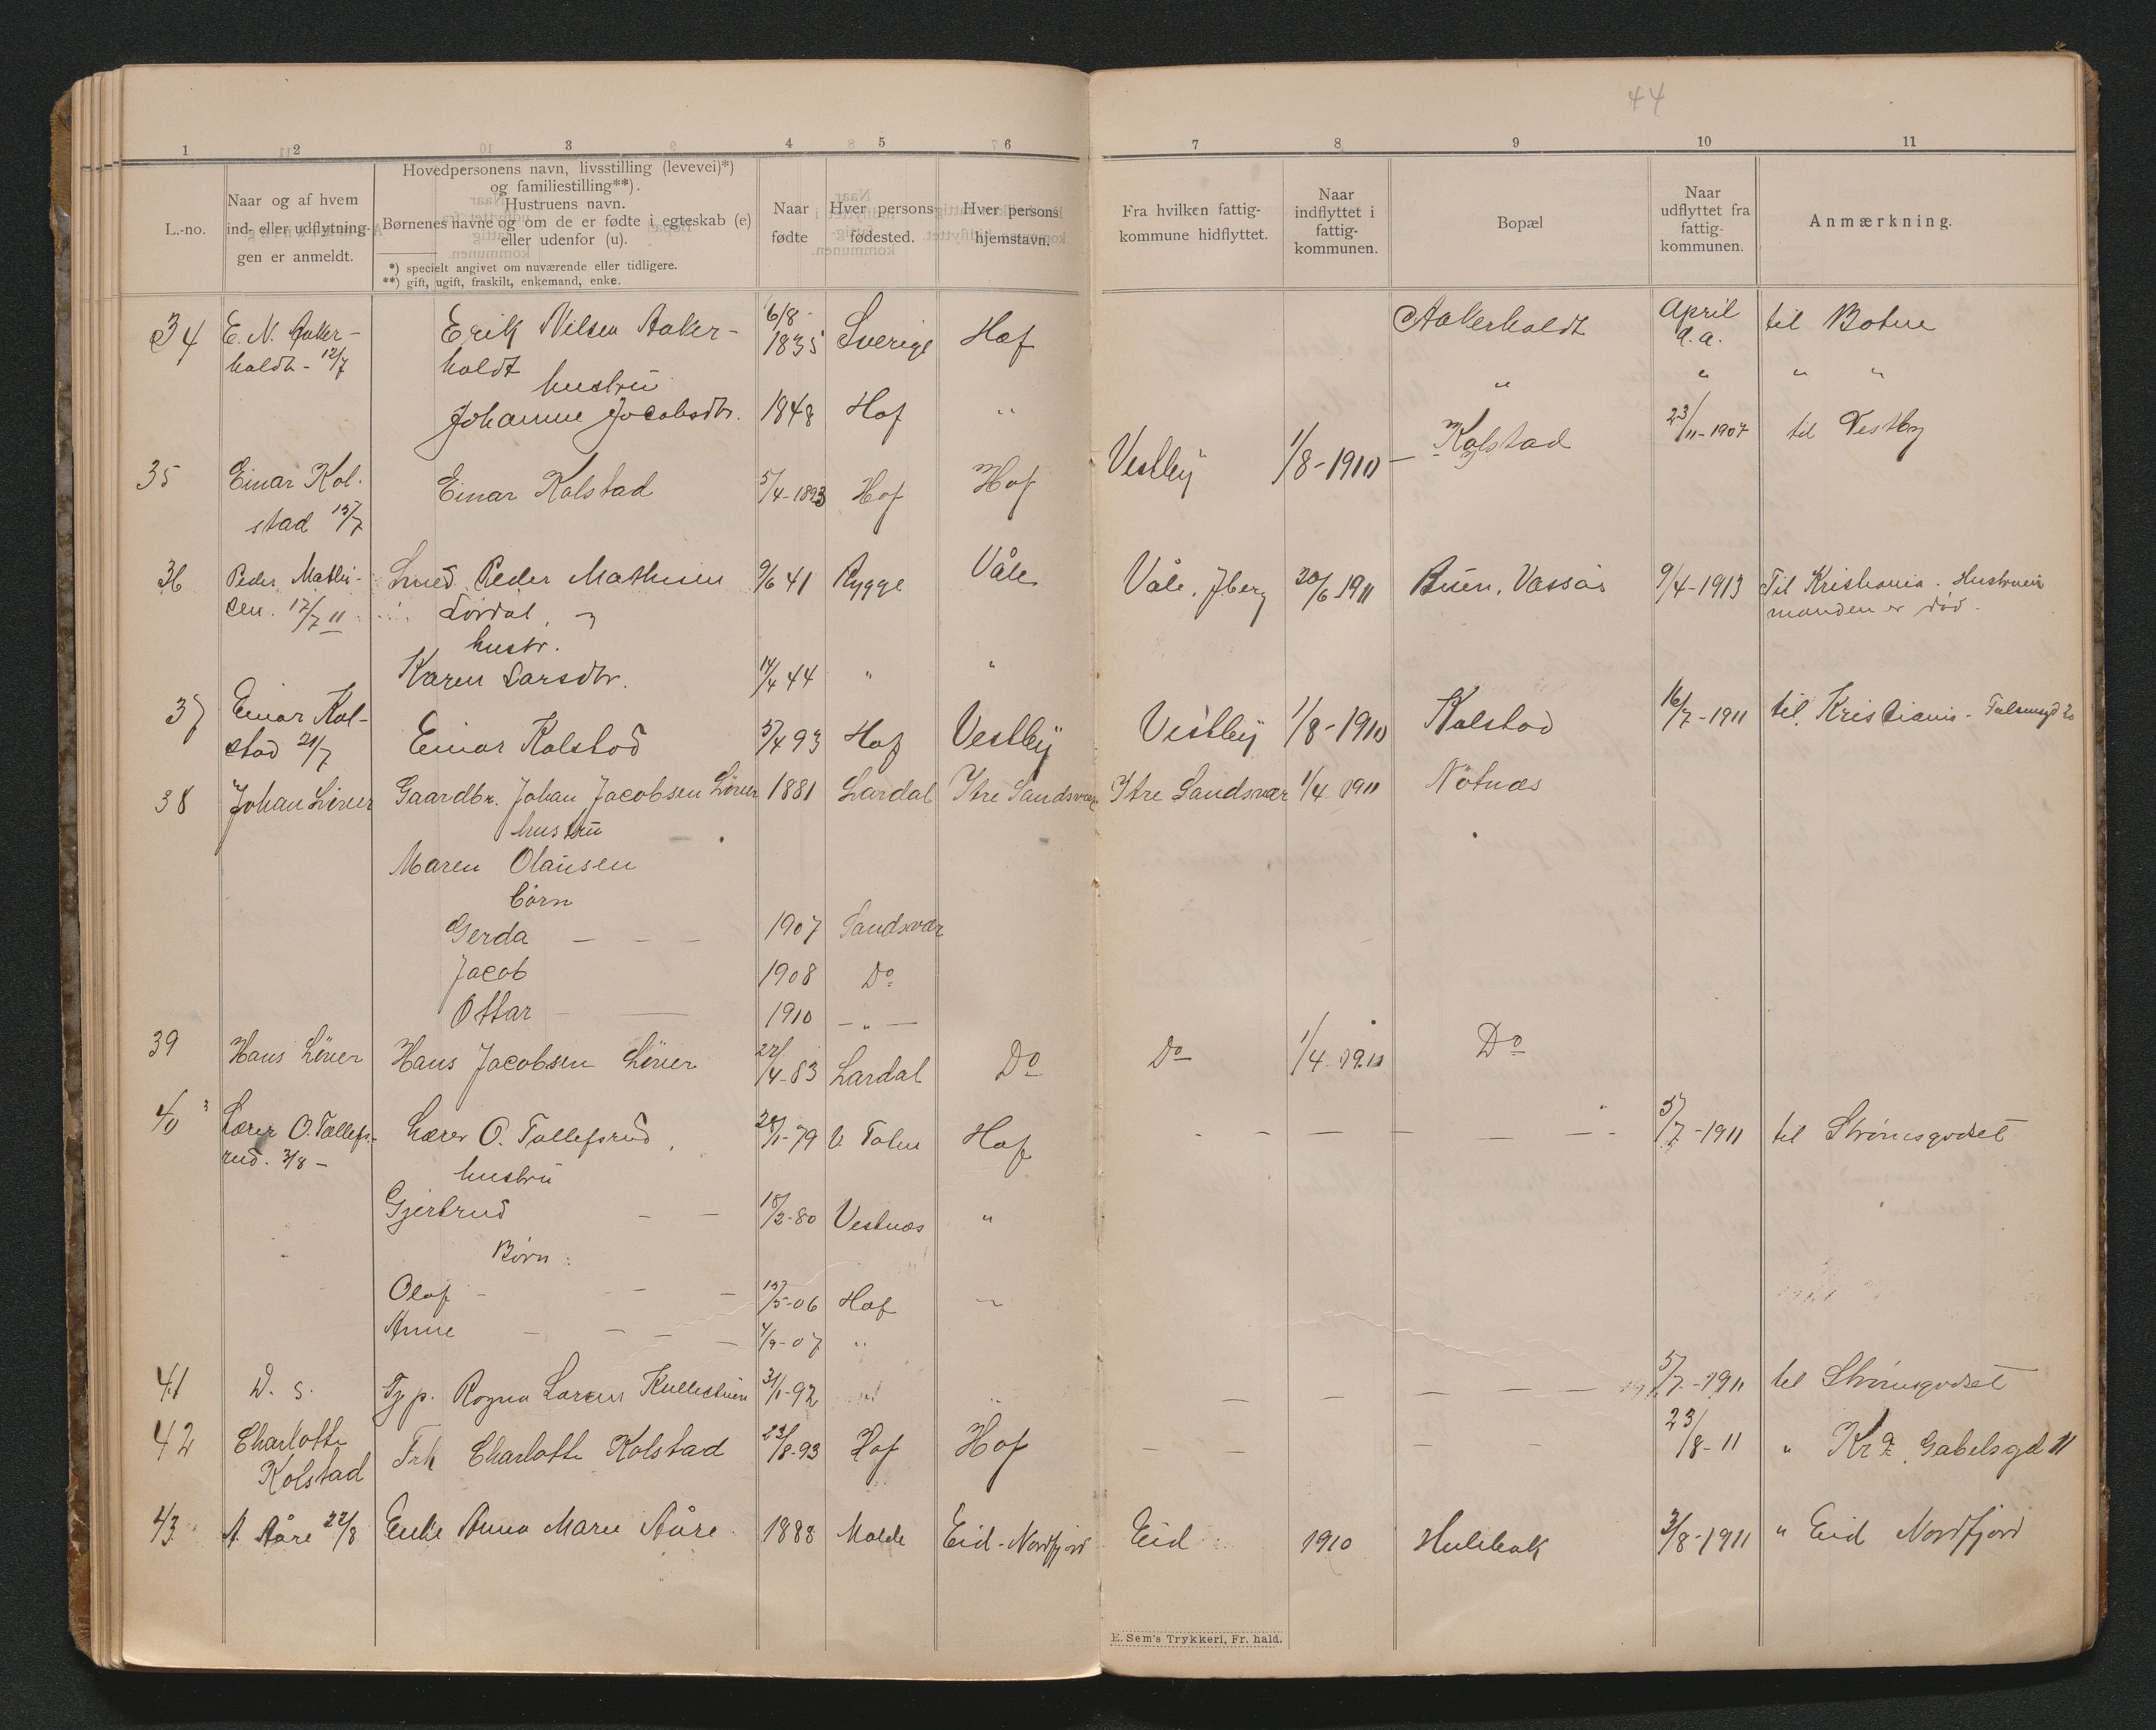 44
1 2 3 4 5 6 7 8 9 10 11
L.-no.
Naar og af hvem
ind- eller udflytnin-
gen er anmeldt.
Hovedpersonens navn, livsstilling (levevei)*)
og familiestilling**).
Hustruens navn.
Børnenes navne og om de er fødte i egteskab (e)
eller udenfor (u).
*) specielt angivet om nuværende eller tidligere.
**) gift, ugift, fraskilt, enkemand, enke.
Naar
fødte
Hver persons
fødested.
Hver persons
hjemstavn.
Fra hvilken fattig-
kommune hidflyttet.
Naar
indflyttet i
fattig-
kommunen.
Bopæl
Naar
udflyttet fra
fattig-
kommunen.
Anmærkning.
34 E. N. Aaker- Erik Nilsen Aaker- 6/8- Sverige Hof Aakerholdt April til Botne
holdt - 12/7 holdt 1835 d. a.
hustru " " " "
Johanne Jacobsdtr. 1848 Hof "
35 Einar Kol- Einar Kolstad 5/4-1893 Hof Hof Vestby 1/8-1910 - Kolstad 23/11-1907 til Vestby
stad 15/7
36 Peder Mathi- Smed Peder Mathisen 9/6 41 Rygge Våle Våle, Jberg 20/6-1911 Buen, Vassås 9/4-1913 Til Kristiania. Hustruen
sen. 17/7 11 Lørdal, manden er død.
hustr.
Karen Larsdtr. 14/4 44 " "
37 Einar Kol- Einar Kolstad 5/4 93 Hof Vestby Vestby 1/8-1910 Kolstad 16/7-1911 til Kristiania -
stad 21/7
38 Johan Löver Gaardbr. Johan Jacobsen Löver 1881 Lardal Ytre Sandsvær Ytre Sandsvær 1/4 1911 Nötnæs
hustru
Maren Olausen
börn
Gerda - - - 1907 Sandsvær
Jacob 1908 Do
Ottar - - 1910 - " -
39 Hans Löver Hans Jacobsen Löver 22/4-83 Lardal Do Do 1/4 1911 Do
40 Lærer O. Tollefs- Lærer O. Tollefsrud, 28/1-79 V. Toten Hof - - - - - - 5/7-1911 til Strømsgodset
rud. 3/8 - hustru
Gjertrud - - 18/2-80 Vestnæs "
Børn:
Olaf - - - 15/5-06 Hof "
Anne - - - - 4/9-07 "
41 D. S. Tj. p. Ragna Larsen 31/1-92 " " - - - - - 5/7-1911 til Strømsgodset
42 Charlotte Frk Charlotte Kolstad 23/8-93 Hof Hof - - - - 23/8-11 " Kra. Gabelsgd 11
Kolstad
43 A. Aåre 22/8 Enke Anna Marie Aåre. 1888 Molde Eid - Nordfjord Eid 1910 Hulebak 3/8-1911 " Eid Nordfjord
E. Sem's Trykkeri, Fr. hald.